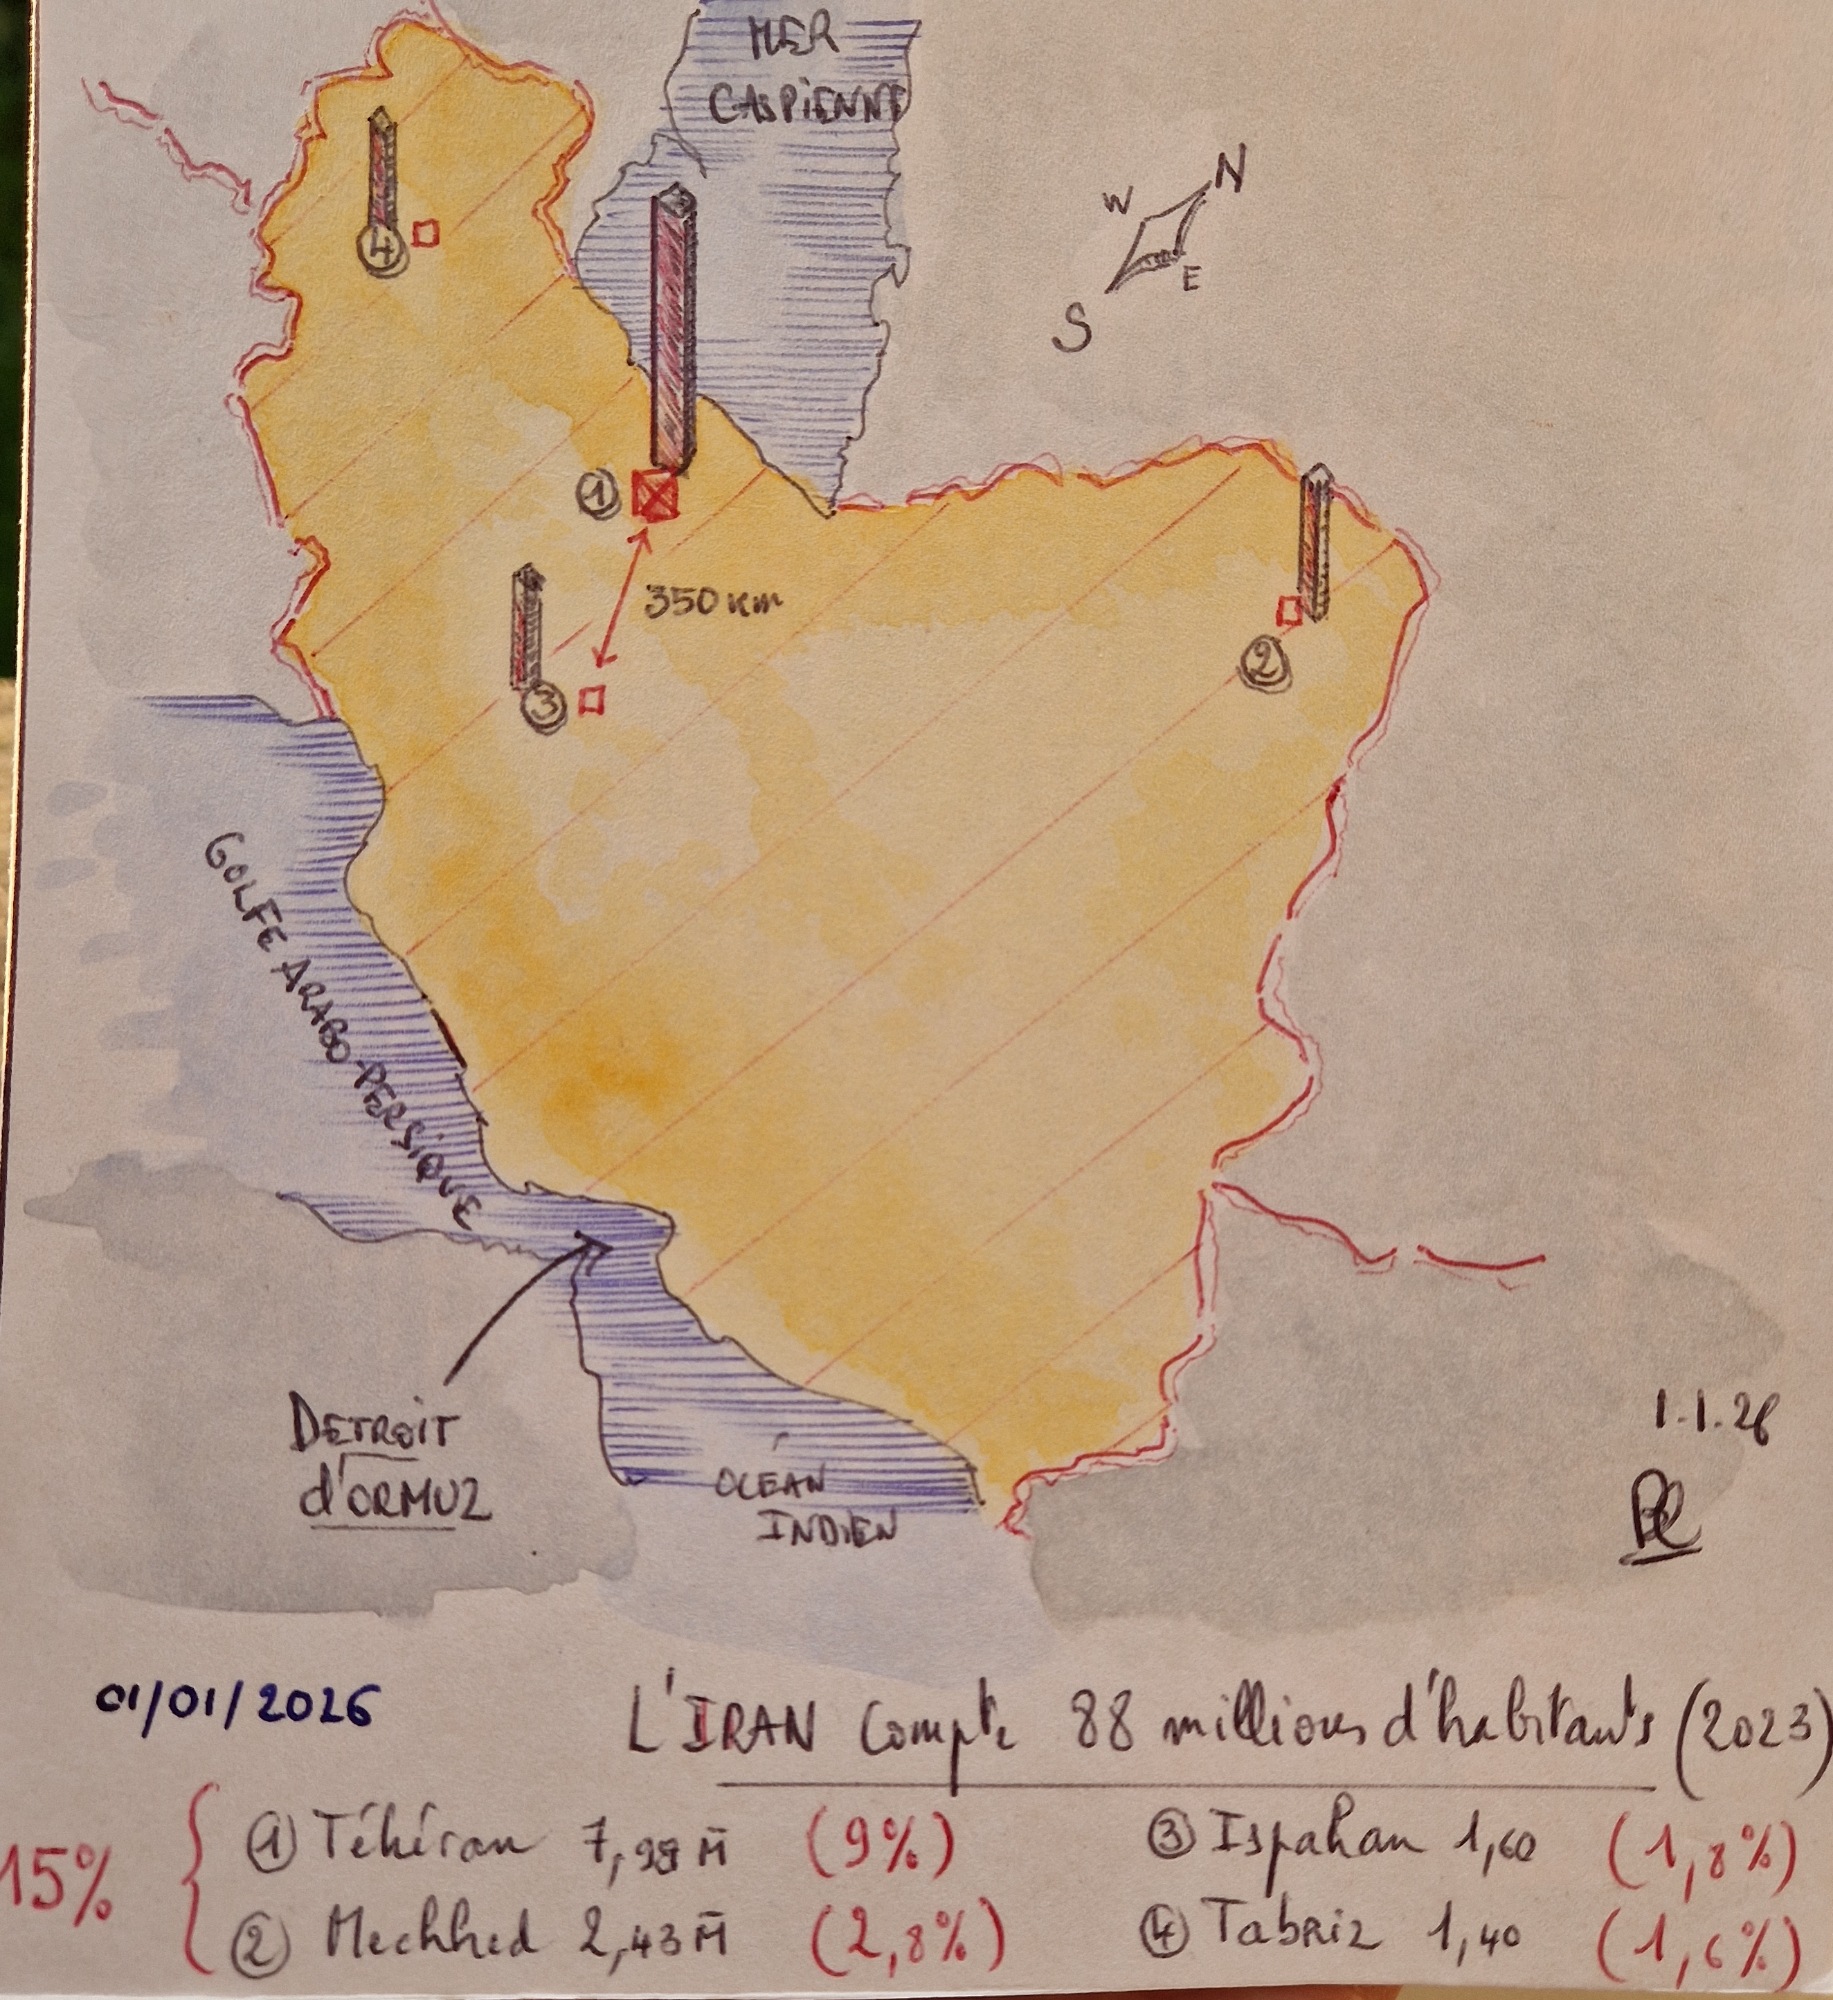 MER
CASPIENNE
N
W
E
S
4
1
350 km
2
3
GOLFE ARABO-PERSIQUE
DETROIT
d'ORMUZ
OCÉAN
INDIEN
1.1.26
01/01/2026
L'IRAN compte 88 millions d'habitants (2023)
15%
1 Téhéran 7,98 M (9%)
3 Ispahan 1,60 (1,8%)
2 Mechhed 2,43 M (2,8%)
4 Tabriz 1,40 (1,6%)